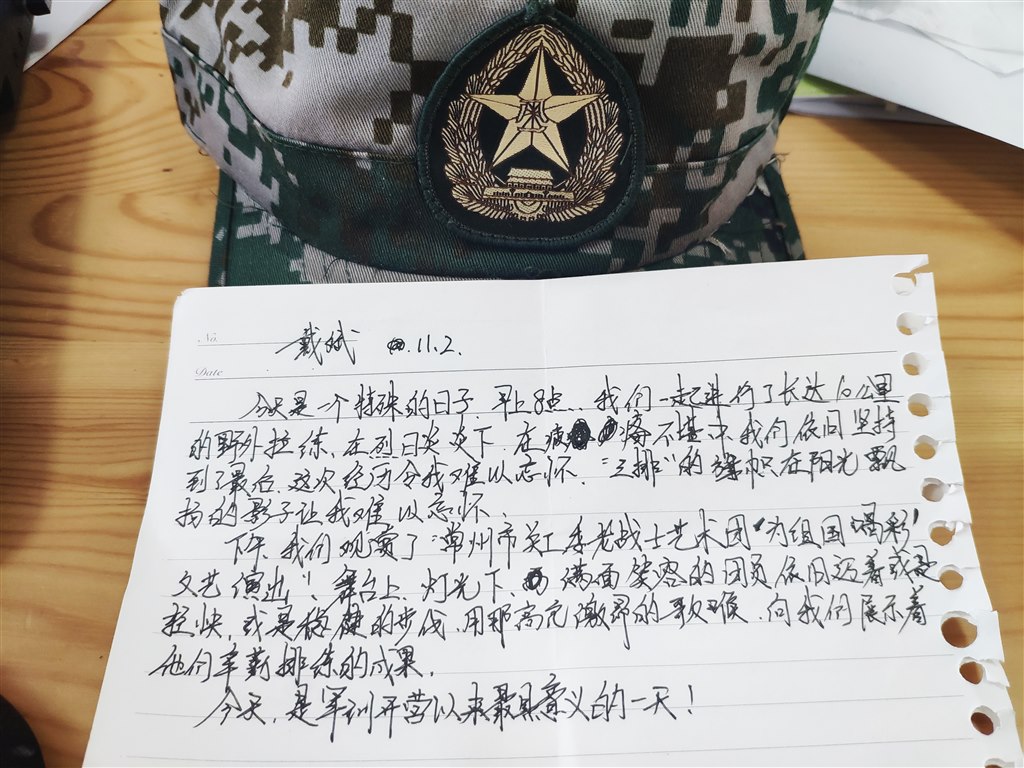 No.
戴斌 11.2.
Date
今天是一个特殊的日子,早上8点..我们一起进行了长达10公里
的野外拉练,在烈日炎炎下,在疲 疼不堪中,我们依旧坚持
到了最后,这次经历令我难以忘怀.“三排”的旗帜在阳光飘
扬的影子让我难以忘怀.
下午,我们观赏了“常州市关工委老战士艺术团”为组国喝彩”
文艺演出!舞台上,灯光下,满面笑容的团员依旧迈着或是
轻快,或是稳健的步伐,用那高亢激昂的歌喉,向我们展示着
他们辛勤排练的成果.
今天,是军训开营以来最具意义的一天!